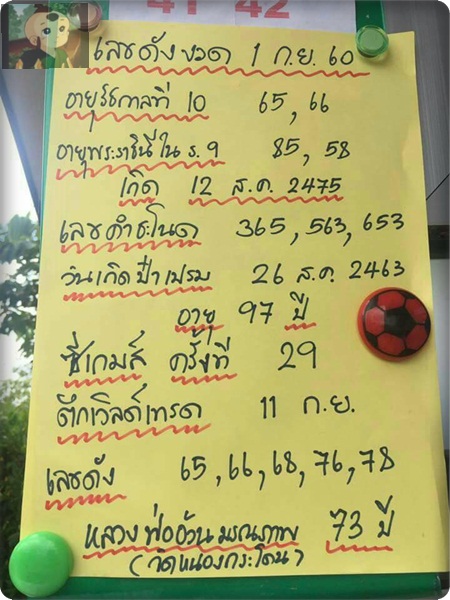 41 42
เลขดังงวด 1 ก.ย. 60
อายุรัชกาลที่ 10 65, 66
อายุพระราชินีใน ร.9 85, 58
เกิด 12 ส.ค. 2475
เลขคำชะโนด 365, 563, 653
วันเกิดป๋าเปรม 26 ส.ค. 2463
อายุ 97 ปี
ซีเกมส์ ครั้งที่ 29
ตึกเวิลด์เทรด 11 ก.ย.
เลขดัง 65, 66, 68, 76, 78
หลวงพ่ออ้วน มรณภาพ 73 ปี
(วัดหนองกระโดน)